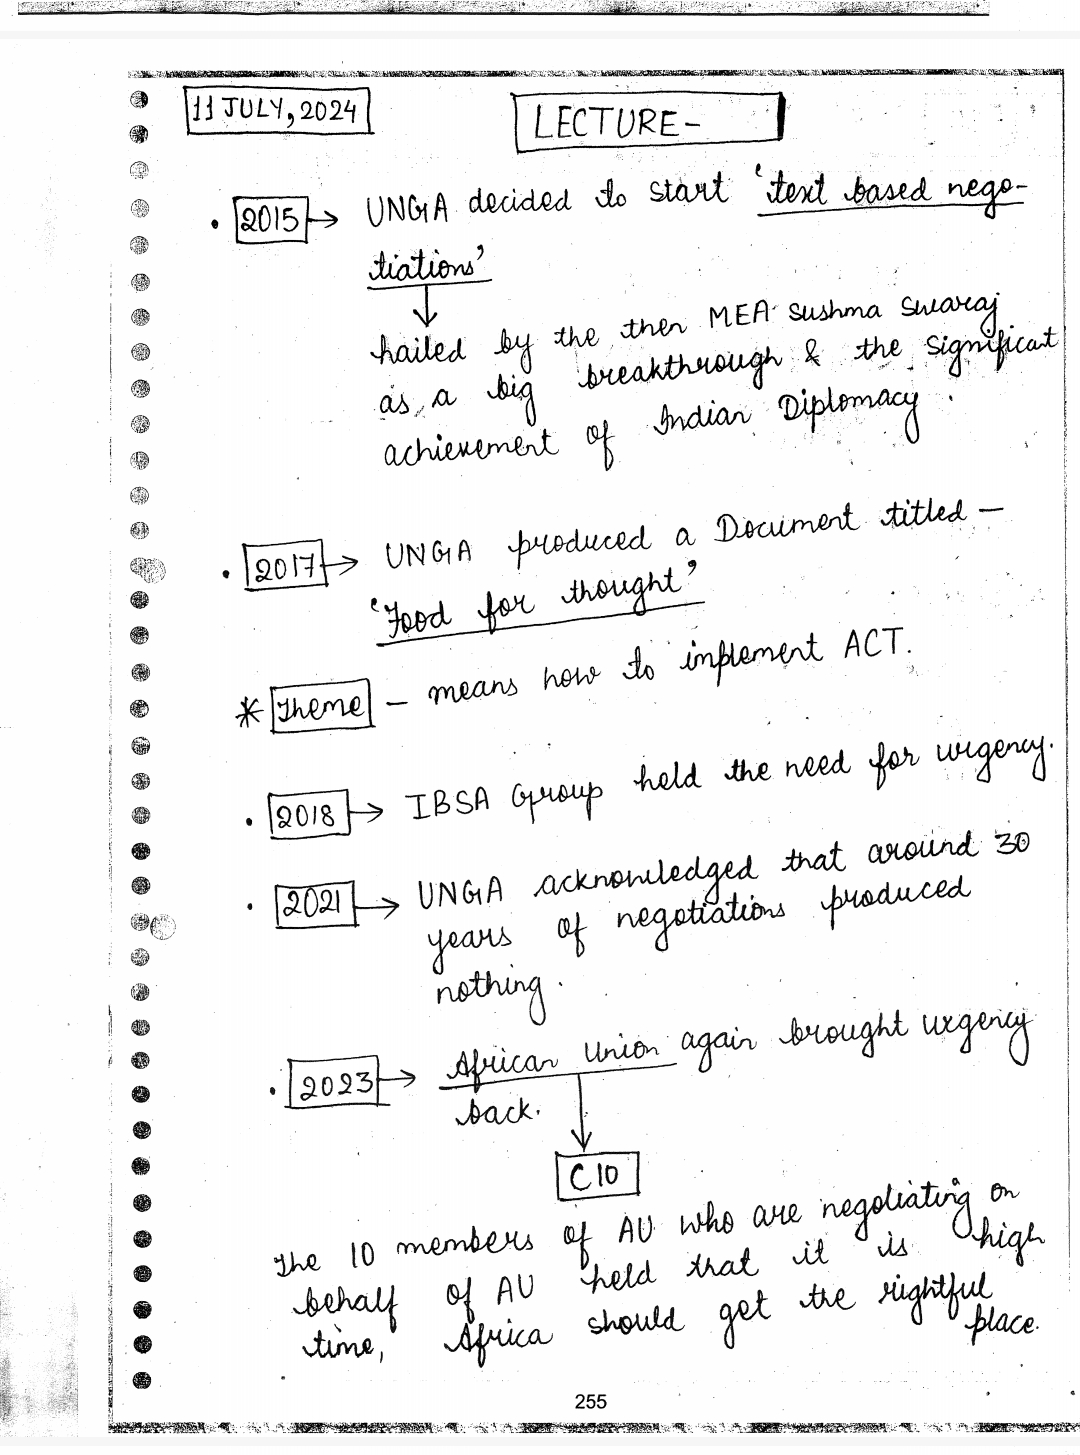 11 JULY, 2024
LECTURE-
• 2015 → UNGA decided to start 'text based nego-
tiations'
↓
hailed by the then MEA Sushma Swaraj
as a big breakthrough & the significant
achievement of Indian Diplomacy.
• 2017 → UNGA produced a Document titled –
'Food for thought'
* Theme – means how to implement ACT.
• 2018 → IBSA Group held the need for urgency.
• 2021 → UNGA acknowledged that around 30
years of negotiations produced
nothing.
• 2023 → African Union again brought urgency
back.
↓
C10
The 10 members of AU who are negotiating on
behalf of AU held that it is high
time, Africa should get the rightful place.
255